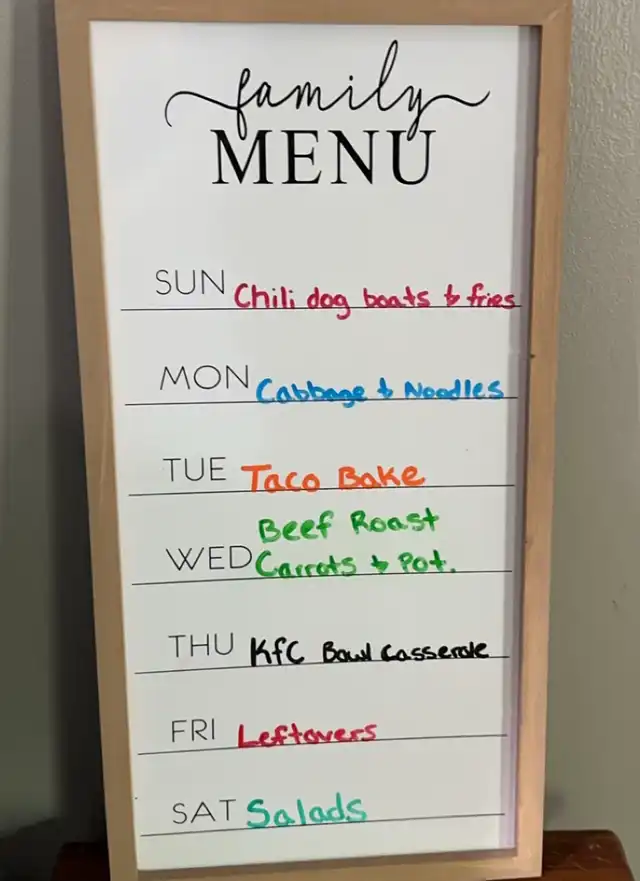 family
MENU
SUN Chili dog boats & fries
MON Cabbage & Noodles
TUE Taco Bake
Beef Roast
WED Carrots & Pot.
THU KFC Bowl Casserole
FRI Leftovers
SAT Salads